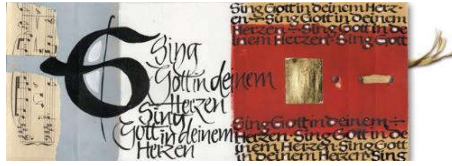 Sing
Gott in deinem
Herzen
Sing
Gott in deinem
Herzen
Sing Gott in deinem Herz-
en Sing Gott in deinem
Herzen Sing Gott in de
inem Herzen Sing Gott
Sing Gott in deinem
Herzen Sing Gott in de
inem Herzen Sing Gott
in deinem Herzen Sing